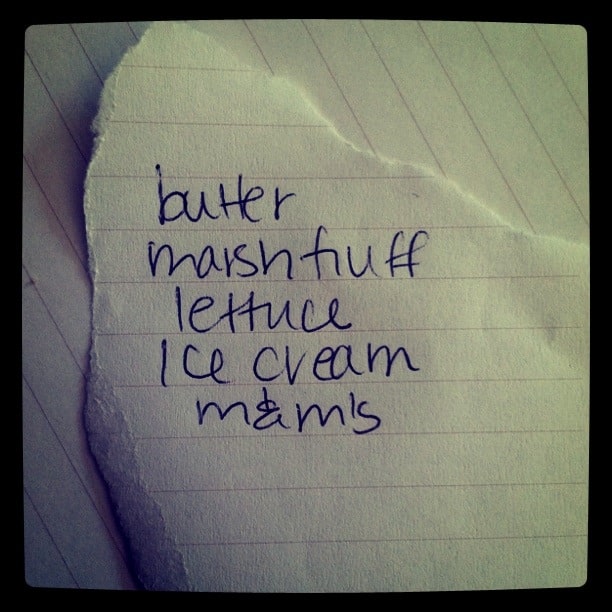 butter
marsh fluff
lettuce
Ice cream
m&m's